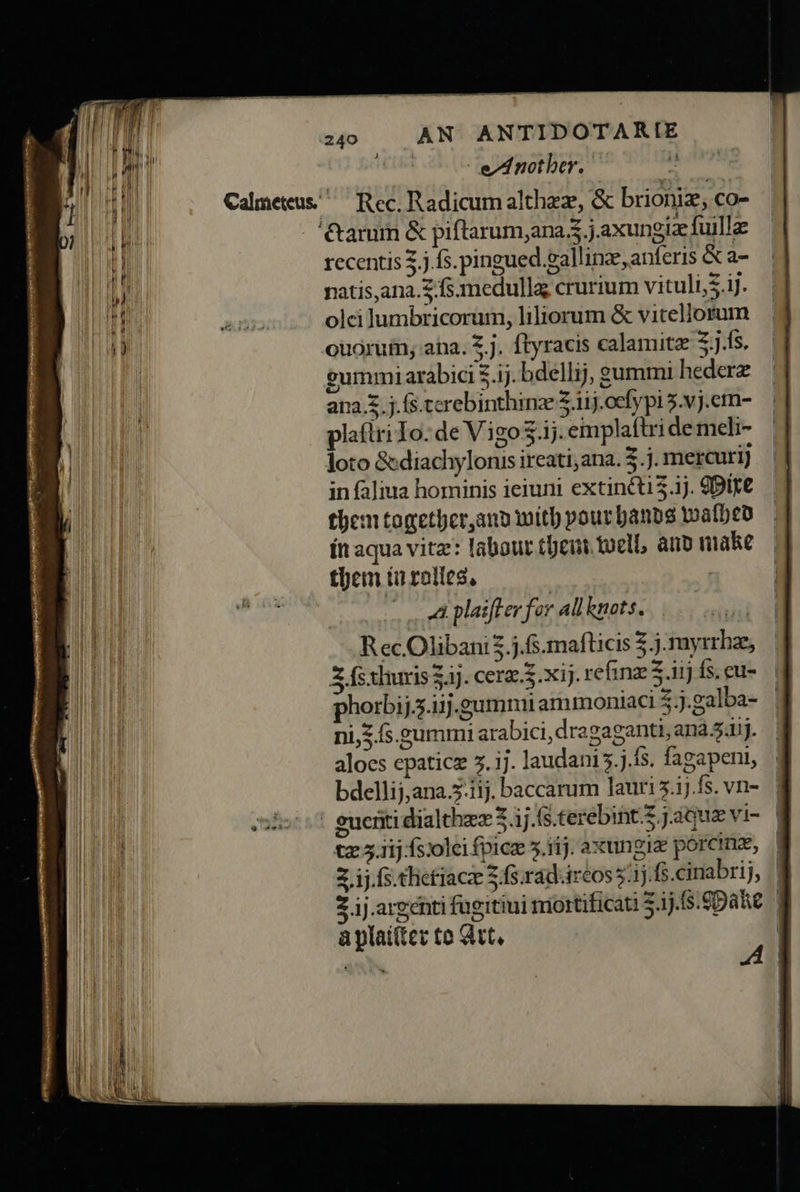 240 AN ANTIDOTARIE
Another.
Calmeteus. Rec. Radicum altheæ, & brioniæ, co-
ctarum & piſtarum,ana.℥.j.axungiæ ſuillæ
recentis ℥.j.ſs.pingued.gallinæ,anſeris & a-
natis,ana.℥.ſs.medullæ crurium vituli,℥.ij.
olei lumbricorum, liliorum & vitellorum
ouorum, ana. ℥.j. ſtyracis calamitæ ℥.j.ſs.
gummi arabici ℥.ij. bdellij, gummi hederæ
ana.℥.j.ſs.terebinthinæ ℥.iij.oeſypi ʒ.vj.em-
plaſtri Io: de Vigo ℥.ij. emplaſtri de meli-
loto & diachylonis ireati,ana. ℥.j. mercurij
in ſaliua hominis ieiuni extincti ℥.ij. Mixe
them together,and with your hands waſhed
in aqua vitæ: labour them well, and make
them in rolles.
A plaiſter for all knots.
Rec.Olibani ℥.j.ſs.maſticis ℥.j.myrrhæ,
℥.ſs.thuris ℥.ij. ceræ.℥.xij. reſinæ ℥.iij ſs. eu-
phorbij.ʒ.iij.gummi ammoniaci ℥.j.galba-
ni,℥.ſs.gummi arabici,dragaganti,ana.ʒ.iij.
aloes epaticæ ʒ.ij. laudani ʒ.j.ſs. ſagapeni,
bdellij,ana.ʒ.iij. baccarum lauri ʒ.ij.ſs. vn-
guenti dialtheæ ℥.ij.ſs.terebint.℥.j.aquæ vi-
tæ ʒ.iij.ſs.olei ſpicæ ʒ.iij. axungiæ porcinæ,
℥.ij.ſs.theriacæ ℥.ſs.rad.ireos ʒ.ij.ſs.cinabrij,
℥.ij.argenti fugitiui mortificati ℥.ij.ſs.Make
a plaiſter to Art.
A